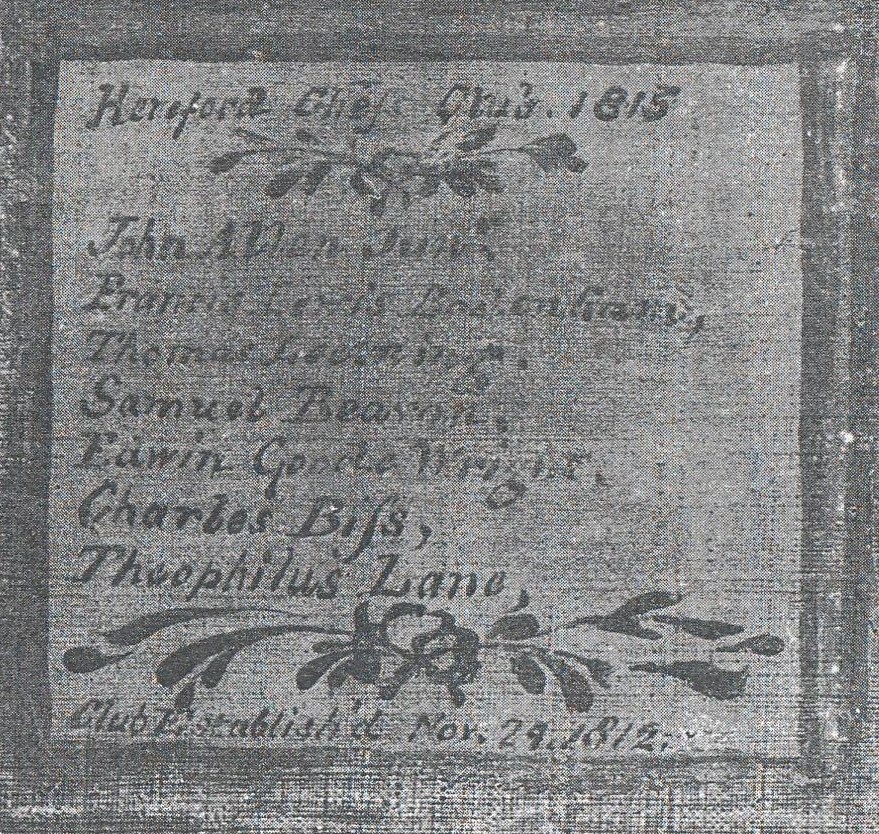 Hereford Cheſs Club. 1815
John Allen Junr
Francis Lewis Bodenham,
Thomas
Samuel Beavan,
Edwin Goode Wright,
Charles Biſs,
Theophilus Lane,
Club Establish'd Nov. 24. 1812.